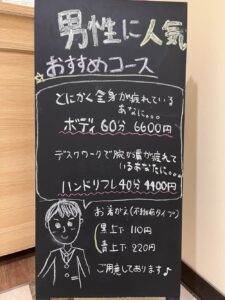 男性に人気
おすすめコース
とにかく全身が疲れている
あなたに。。。
ボディ60分 6600円
デスクワークで腕が疲れて
いるあなたに。。。
ハンドリフレ40分 4400円
お着がえ(不織布タイプ)
黒上下 110円
青上下 220円
ご用意しております♪